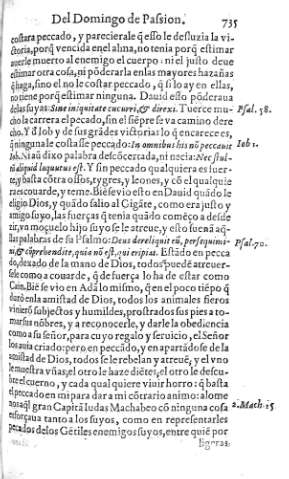 Del Domingo de Passion. 735
costara peccado, y pareciera le q̃ esso le desluzia la vic-
toria, porq̃ vencida en el alma, no tenia porq̃ estimar
auerle muerto al enemigo el cuerpo: ni el justo deue
estimar otra cosa, ni põderarla en las mayores hazañas
q̃ haga, sino el no le costar peccado, q̃ si lo ay en ellas,
no tiene porq̃ estimar ninguna. Dauid esto põderaua
de las suyas: Sine iniquitate cucurri, & direxi. Tuerce mu-
cho la carrera el pecado, sin el siẽpre se va camino dere
cho. Y d̃ Iob y de sus grãdes victorias lo q̃ encarece es,
q̃ ninguna le costasse peccado: In omnibus his nõ peccauit
Iob. Ni aũ dixo palabra descõcertada, ni necia: Nec stul-
tũ aliquid loquutus est. Y sin peccado qualquiera es fuer-
te, y basta cõtra ossos, tygres, y leones, y cõ el qualquie
ra es couarde, y teme. Biẽ se vio esto en Dauid quãdo le
eligio Dios, y quãdo salio al Gigãte, como era justo y
amigo suyo, las fuerças q̃ tenia quãdo començo a desde
zir, va moçuelo hijo suyo se le atreue, y esto suena aq̃-
llas palabras de su Psalmo: Deus dereliquit eũ, persequimi-
ni, & cõprehendite, quia nõ est, qui eripiat. Estãdo en pecca
do, dexado de la mano de Dios, todos puedẽ atreuer-
sele como a couarde, q̃ de fuerça lo ha de estar como
Cain. Biẽ se vio en Adã lo mismo, q̃ en el poco tiẽpo q̃
durò en la amistad de Dios, todos los animales fieros
vinierõ subjectos y humildes, prostrados sus pies a to-
mar sus nõbres, y a reconocerle, y darle la obediencia
como a su señor, para cuyo regalo y seruicio, el Señor
los auia criado: pero en peccãdo, y en apartãdose de la
amistad de Dios, todos se le rebelan y atreuẽ, y el vno
le muestra vñas, el otro le haze diẽtes, el otro le descu-
bre el cuerno, y cada qual quiere viuir horro: q̃ basta
el peccado en mi para dar a mi cõtrario animo: a lo me
nos aq̃l gran Capitã Iudas Machabeo cõ ninguna cosa
esforçaua tanto a los suyos, como en representarles
peccados de los Gẽtiles enemigos suyos, entre quiẽ por
Psal. 58.
Iob 1.
Psal. 70.
2. Mach. 15